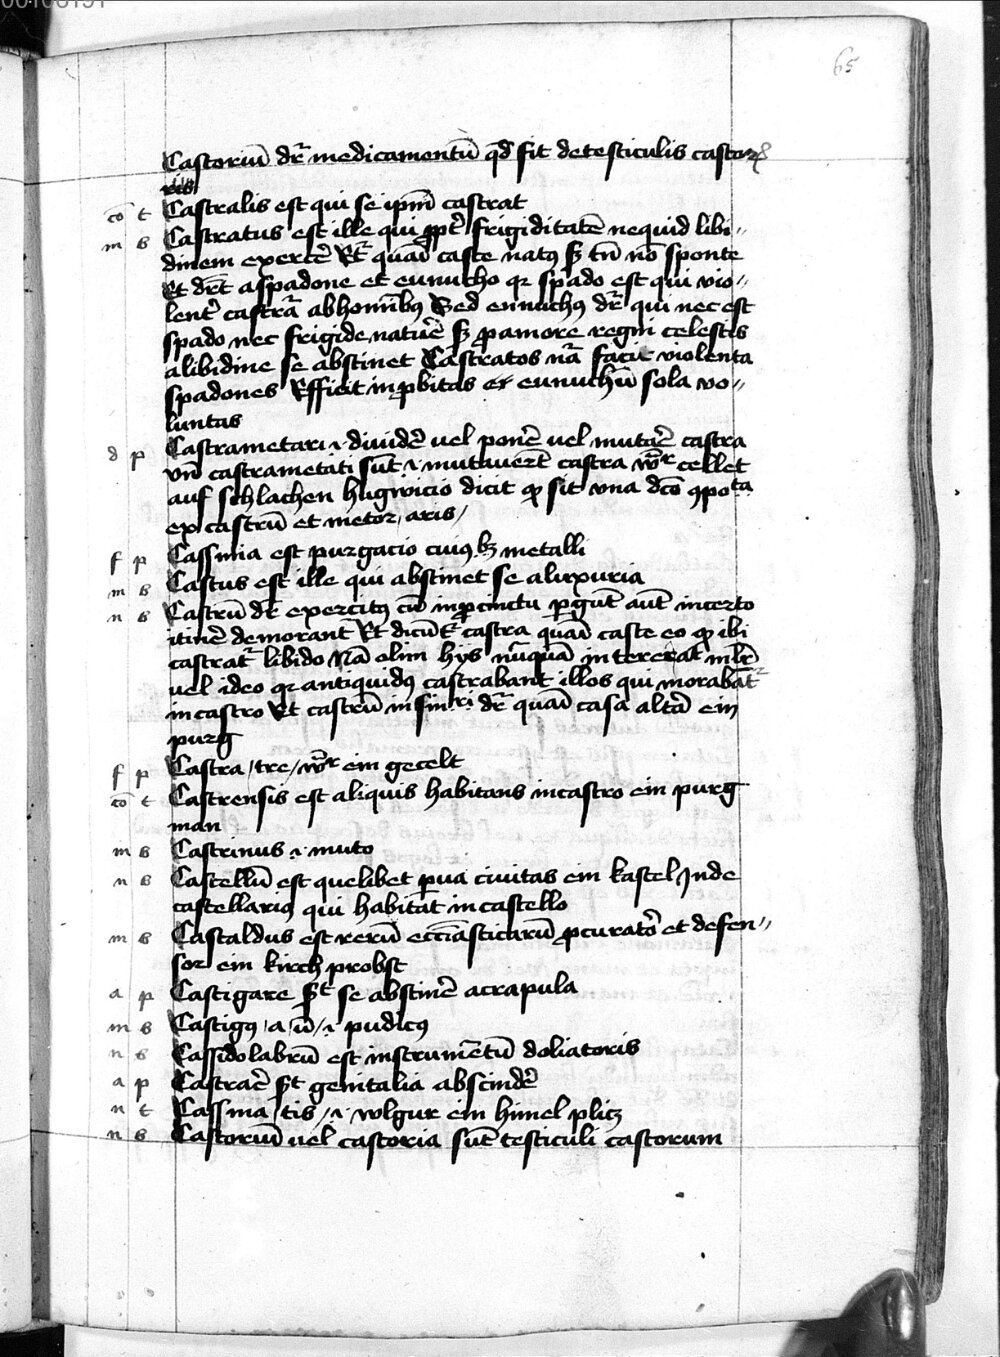 65
Castoriū dr̄ medicamentū qd̓ fit de testiculis castor
ris
cō t Castralis est qui se ip̄m castrat
m s Castratus est ille qui ꝓpt̓ frigiditatē nequid libi〃
dinem exercē Et̓ quāī caste natꝰ sꝫ tn̄ nō sponte
Et dr̄t a spadone et eunucho qꝛ spado est qui vio〃
lent̓ castrat̄ ab hominibꝫ Sed eunuchꝰ dr̄ qui nec est
spado nec frigide natur̄e sꝫ ꝓ amore regni celestis
a libidine se abstinet Castratos nā facit violenta
spadones Efficit inꝓbitas et eunuchū sola vo〃
luntas
d p Castrametari ·i· diuider̄ vel poner̄ vel mutar̄ castra
vn̄ castrametati sūt ·i· mutauer̄t castra cellet
auf schlachen hugwicio dicit ꝙ sit vna dc̄o ꝯpoͭᵃ
ex castrū et metor aris
f p Cassinia est purgacio cuiꝰlꝫ metalli
m s Castus est ille qui abstinet se a luxuria
n s Castrū dr̄ exercitꝰ cū in ꝓcinctu ꝑgūt aūt incerto
itiner̄ demorant̄ Et dicūt̓ castra quāī caste eo ꝙ ibi
castrat̓ libido Nā olim hijs nūquā intererat ml̄r
vel ideo qꝛ antiquidꝰ castrabant illos qui morabāt̓
in castro Et castrū in sinͬⁱ dr̄ quāī casa alta ein
purg
f p Castra / tre / ein gecelt
cō t Castrensis est aliquis habitans in castro ein purg
man
m s Castrinus ·i· muto
n s Castellū est quelibet ꝑua ciuitas ein kastel Inde
castellariꝰ qui habitat in castello
m s Castaldus est rerū eccīasticarū ꝓcurator̓ et defen〃
sor ein kirch probst
a p Castigare st̄ se abstiner̄ a crapula
m s Castigꝰ / a ū / ·i· pudicꝰ
n s Cassidolabrū est instrumentū doliatoris
a p Castrar̄ st̄ genitalia abscinder̄
n t Cassma / tis / ·i· wlgur ein himel plicz
n s Castoriū vel castoria sūt testiculi castorum